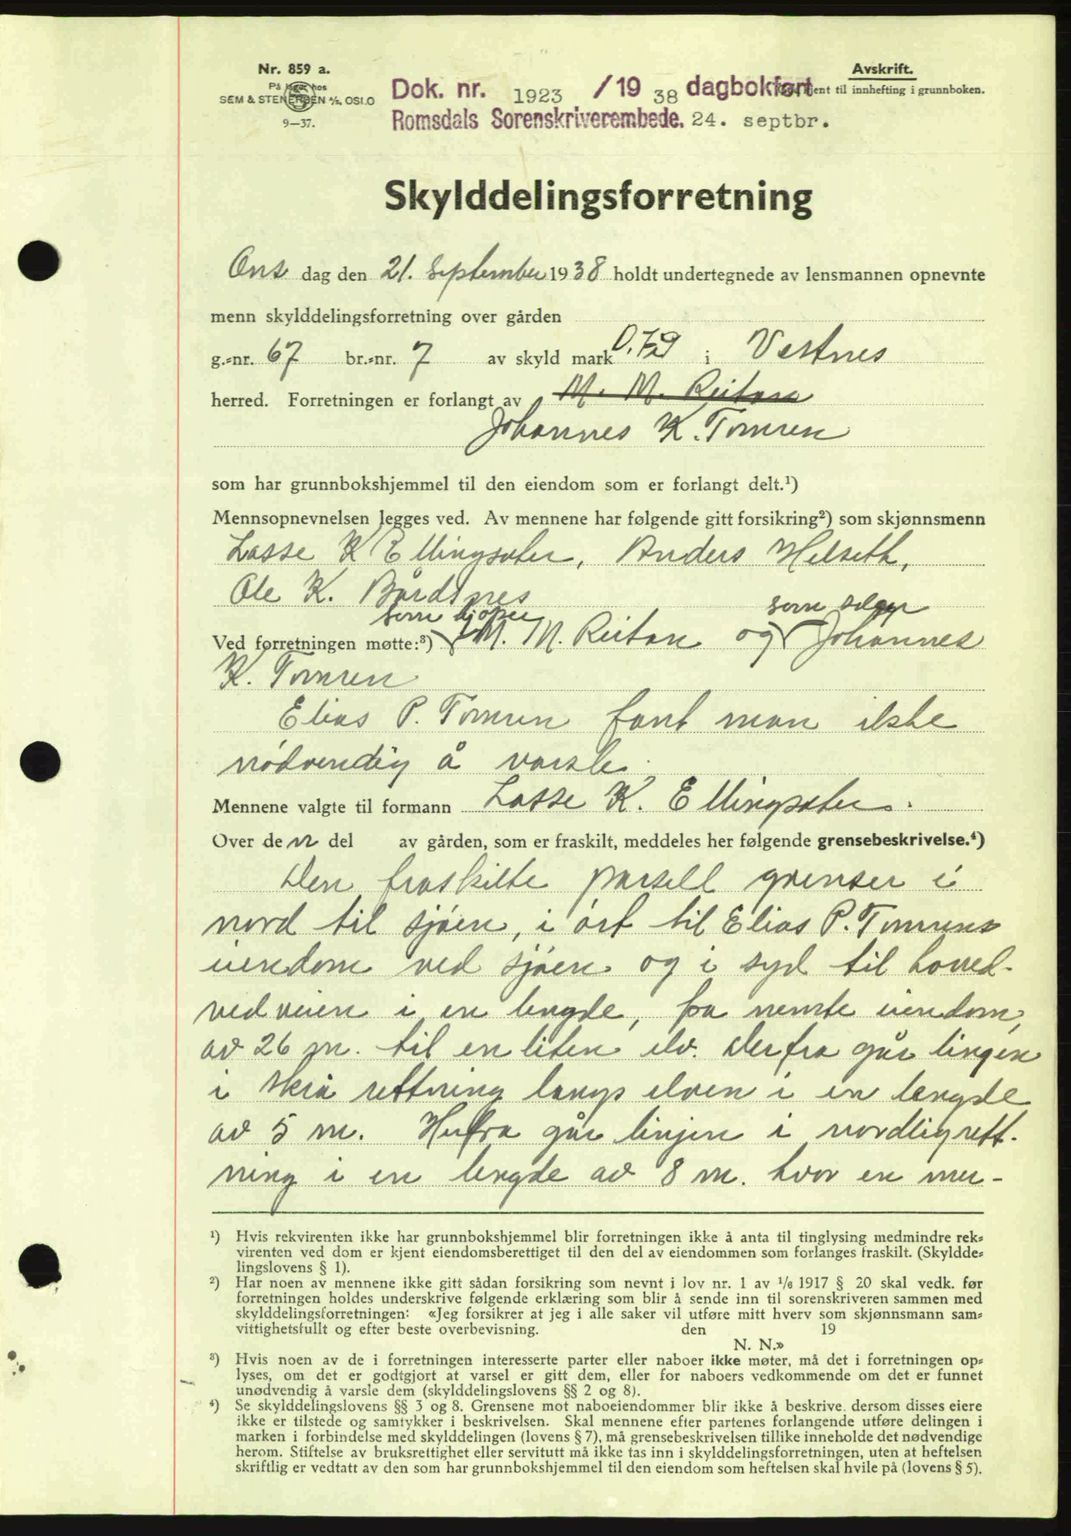 Nr. 859 a.
På lager hos
SEM & STENERSEN A/S, OSLO
9—37.
Avskrift.
Dok. nr. 1923 /19 38 dagbokført
ent til innhefting i grunnboken.
Romsdals Sorenskriverembede. 24. septbr.
Skylddelingsforretning
Ons dag den 21. September 1938 holdt undertegnede av lensmannen opnevnte
menn skylddelingsforretning over gården
g.-nr. 67 br.-nr. 7 av skyld mark 0.79 i Vestnes
herred. Forretningen er forlangt av M. M. Reitan
Johannes K. Tomren
som har grunnbokshjemmel til den eiendom som er forlangt delt.¹)
Mennsopnevnelsen legges ved. Av mennene har følgende gitt forsikring²) som skjønnsmenn
Lasse K Ellingsæter, Anders Helseth,
Ole K. Bårdsnes
som kjøper som selger
Ved forretningen møtte:³) M. M. Reitan og Johannes
K. Tomren
Elias P. Tomren fant man ikke
nødvendig å varsle.
Mennene valgte til formann Lasse K. Ellingsæter.
Over den del av gården, som er fraskilt, meddeles her følgende grensebeskrivelse.⁴)
Den fraskilte parsell grenser i
nord til sjøen, i øst til Elias P. Tomrens
eiendom ved sjøen og i syd til hoved-
vedveien i en lengde, fra nemte eiendom,
av 26 m. til en liten elv. Derfra går linjen
i skrå rettning langs elven i en lengde
av 5 m. Herfra går linjen i nordlig rett-
ning i en lengde av 8 m. hvor en mer-
¹) Hvis rekvirenten ikke har grunnbokshjemmel blir forretningen ikke å anta til tinglysing medmindre rek-
virenten ved dom er kjent eiendomsberettiget til den del av eiendommen som forlanges fraskilt. (Skyldde-
lingslovens § 1).
²) Har noen av mennene ikke gitt sådan forsikring som nevnt i lov nr. 1 av 1/6 1917 § 20 skal vedk. før
forretningen holdes underskrive følgende erklæring som blir å sende inn til sorenskriveren sammen med
skylddelingsforretningen: «Jeg forsikrer at jeg i alle saker vil utføre mitt hverv som skjønnsmann sam-
vittighetsfullt og efter beste overbevisning. den 19
N. N.»
³) Hvis noen av de i forretningen interesserte parter eller naboer ikke møter, må det i forretningen op-
lyses, om det er godtgjort at varsel er gitt dem, eller for naboers vedkommende om det er funnet
unødvendig å varsle dem (skylddelingslovens §§ 2 og 8).
⁴) Se skylddelingslovens §§ 3 og 8. Grensene mot naboeiendommer blir ikke å beskrive, dersom disses eiere
ikke er tilstede og samtykker i beskrivelsen. Skal mennene efter partenes forlangende utføre delingen i
marken i forbindelse med skylddelingen (lovens § 7), må grensebeskrivelsen tillike inneholde det nødvendige
herom. Stiftelse av bruksrettighet eller servitutt må ikke tas inn i skylddelingsforretningen, uten at heftelsen
skriftlig er vedtatt av den som har grunnbokshjemmel til den eiendom som heftelsen skal hvile på (lovens § 5).